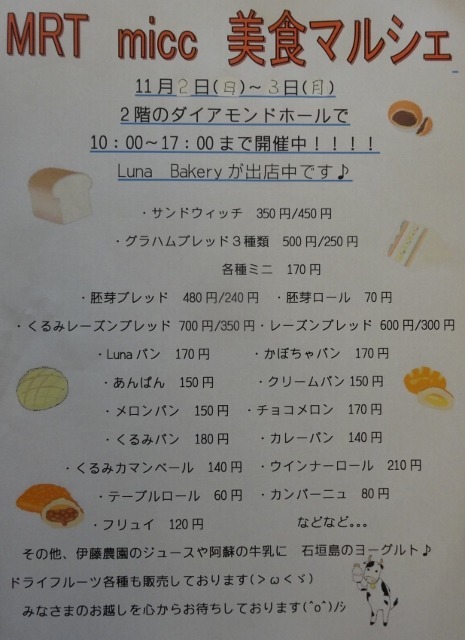 MRT micc 美食マルシェ
11月2日(日)~3日(月)
2階のダイアモンドホールで
10:00~17:00まで開催中!!!!
Luna Bakeryが出店中です♪
・サンドウィッチ 350円/450円
・グラハムブレッド3種類 500円/250円
各種ミニ 170円
・胚芽ブレッド 480円/240円 ・胚芽ロール 70円
・くるみレーズンブレッド 700円/350円・レーズンブレッド 600円/300円
・Lunaパン 170円 ・かぼちゃパン 170円
・あんぱん 150円 ・クリームパン150円
・メロンパン 150円 ・チョコメロン 170円
・くるみパン 180円 ・カレーパン 140円
・くるみカマンベール 140円 ・ウインナーロール 210円
・テーブルロール 60円 ・カンパーニュ 80円
・フリュイ 120円 などなど。。。
その他、伊藤農園のジュースや阿蘇の牛乳に 石垣島のヨーグルト♪
ドライフルーツ各種も販売しております(>ω<ヾ)
みなさまのお越しを心からお待ちしております(^o^)ノシ